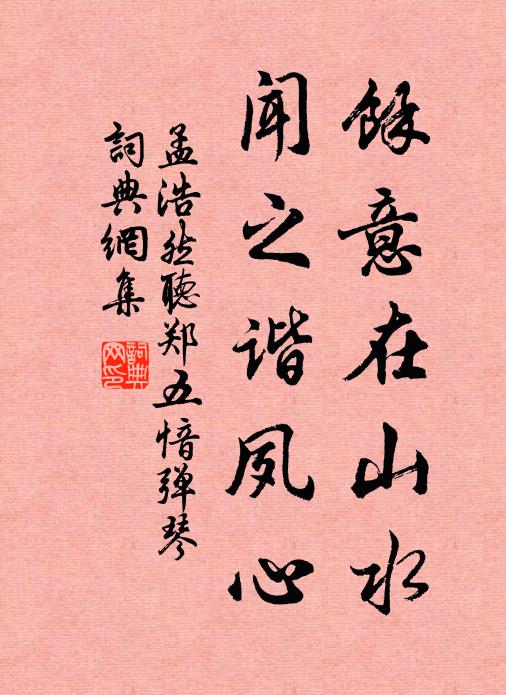 餘意在山水
闻之谐夙心
孟浩然聽郑五愔弹琴
詞典網集
詞典网印